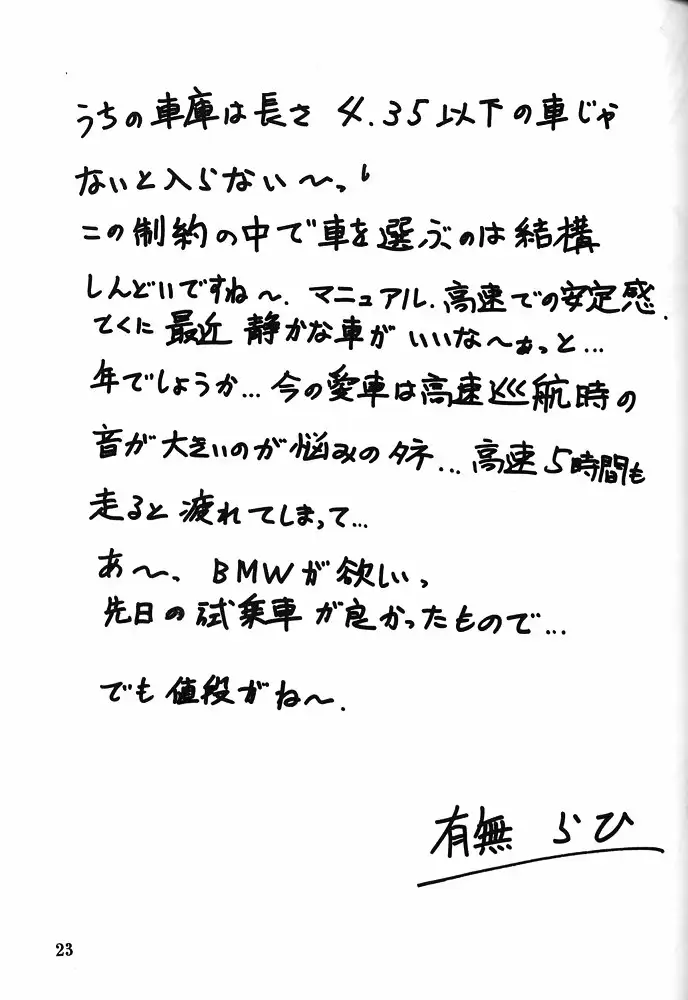 うちの車庫は長さ 4.35以下の車じゃ
ないと入らない〜っ
この制約の中で車を選ぶのは結構
しんどいですね〜. マニュアル. 高速での安定感.
てくに 最近 静かな車が いいな〜ぁっと...
年でしょうか... 今の愛車は高速巡航時の
音が大きいのが悩みのタネ... 高速5時間も
走ると疲れてしまって...
あ〜、BMWが欲しいっ
先日の試乗車が良かったもので...
でも値段がね〜.
有無 らひ
23